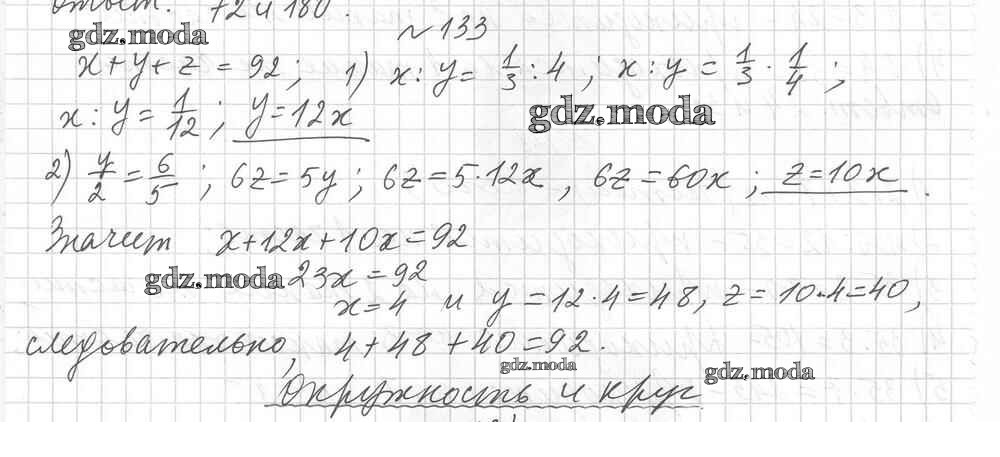 Ответ. 72 и 180.
gdz.moda
№133
x+y+z=92; 1) x:y=1/3:4; x:y=1/3·1/4;
gdz.moda
x:y=1/12; y=12x
2) y/2=6/5; 6z=5y; 6z=5·12x, 6z=60x; z=10x.
Значит x+12x+10x=92
gdz.moda
23x=92
x=4 и y=12·4=48, z=10·4=40,
следовательно, 4+48+40=92.
gdz.moda
gdz.moda
Окружность и круг